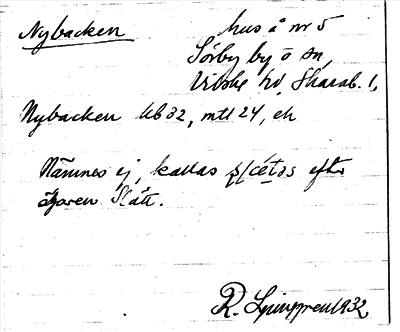 Nybacken hus å nr 5
Sörby by o sn,
Vilske hd, Skarab. l,
Nybacken kb 32, mtl 24, ek
Nämnes ej, kallas efter
ägaren Slätt.
R. Ljunggren 1932